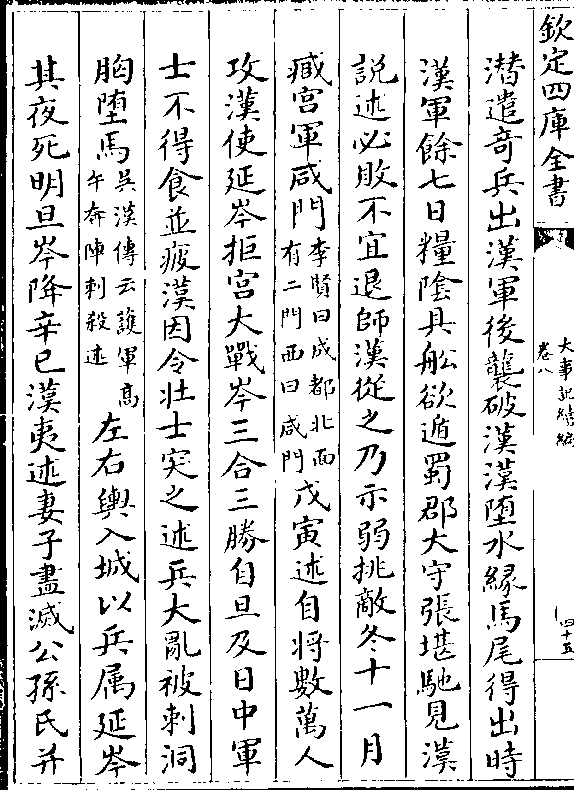 欽定四庫全書
大事記續編
卷八
四十五
潜遣竒兵出漢軍後襲破漢漢墮水緣馬尾得出時
漢軍餘七日糧隂具舩欲遁蜀郡大守張堪馳見漢
説述必敗不宜退師漢從之乃示弱挑敵冬十一月
臧宫軍咸門李賢曰成都北面有二門西曰咸門戊寅述自將數萬人
攻漢使延岑拒宫大戰岑三合三勝自旦及日中軍
士不得食並疲漢因令壯士突之述兵大亂被刺洞
胸墮馬吳漢傳云護軍髙午奔陣刺殺述左右輿入城以兵属延岑
其夜死明旦岑降辛巳漢夷述妻子盡滅公孫氏并